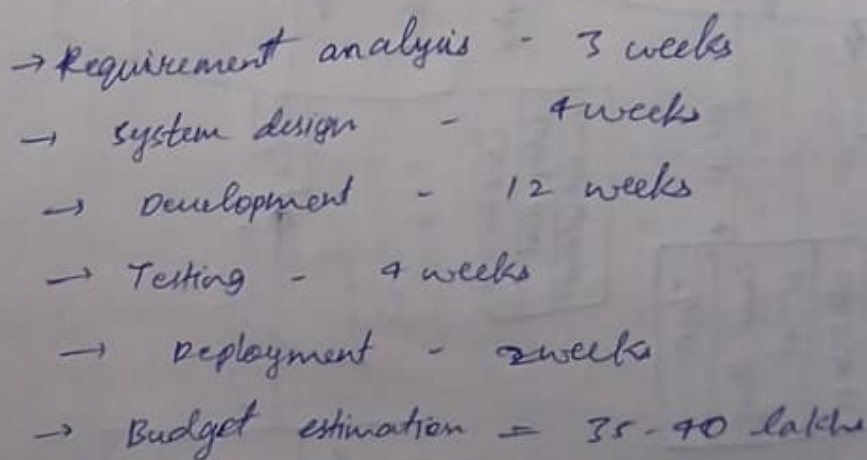 → Requirement analysis - 3 weeks
→ system design - 4 weeks
→ Development - 12 weeks
→ Testing - 4 weeks
→ Deployment - 2 weeks
→ Budget estimation = 35-40 lakhs